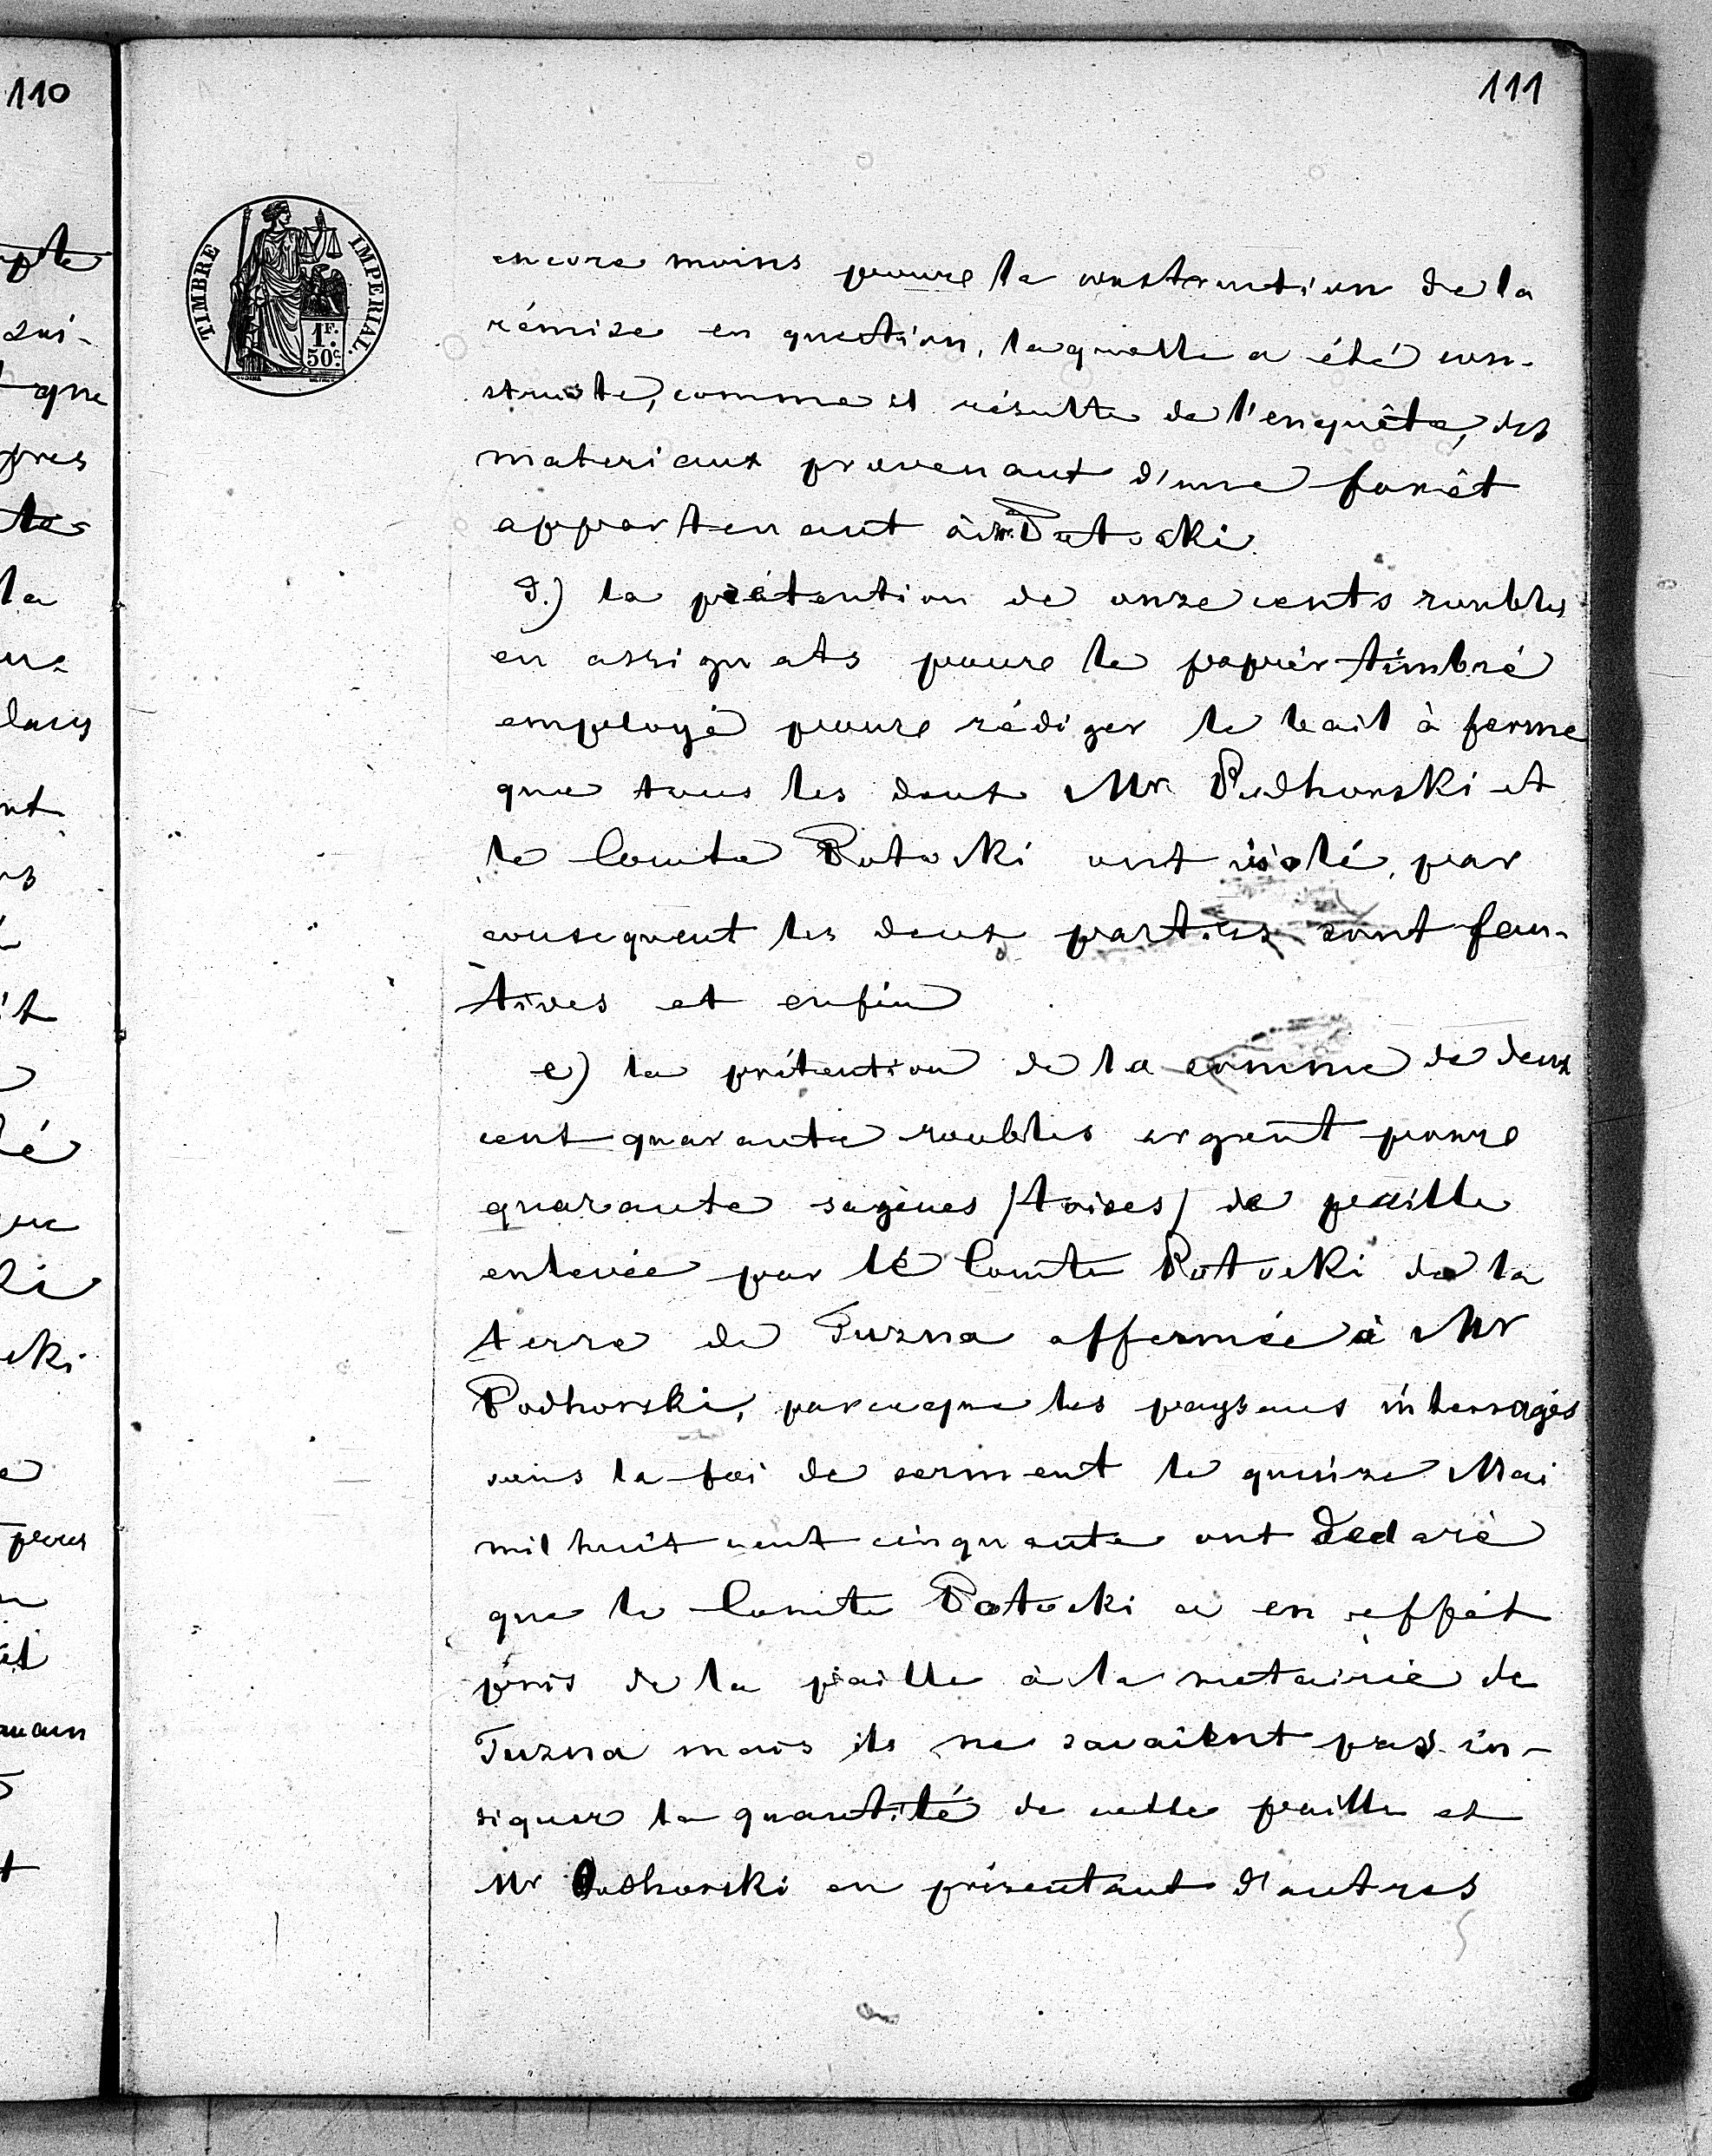 110
111
TIMBRE IMPERIAL.
1F.
50c.
encore moins pour la construction de la
rémise en question, laquelle a été con-
struite, comme il résulte de l'enquête, des
materiaux provenant d'une forêt
appartenant à Mr Potocki.
d.) la prétention de onze cents roubles
en assignats pour le papier timbré
employé pour rédiger le bail à ferme
que tous les deux Mr Podhorski et
le Comte Potocki ont violé, par
consequent les deux parties sont fau-
tives et enfin
e) la prétention de la somme de deux
cent quarante roubles argent pour
quarante sagènes /toises/ de paille
enlevée par le Comte Potocki de la
terre de Tuzna affermée à Mr
Podhorski, parceque les paysans interrogés
sous la foi de serment le quinze Mai
mil huit cent cinquante ont declaré
que le Comte Potocki a en effét
pris de la paille à la metairie de
Tuzna mais ils ne savaient pas in-
siquer la quantité de cette paille et
Mr Podhorski en présentant d'autres